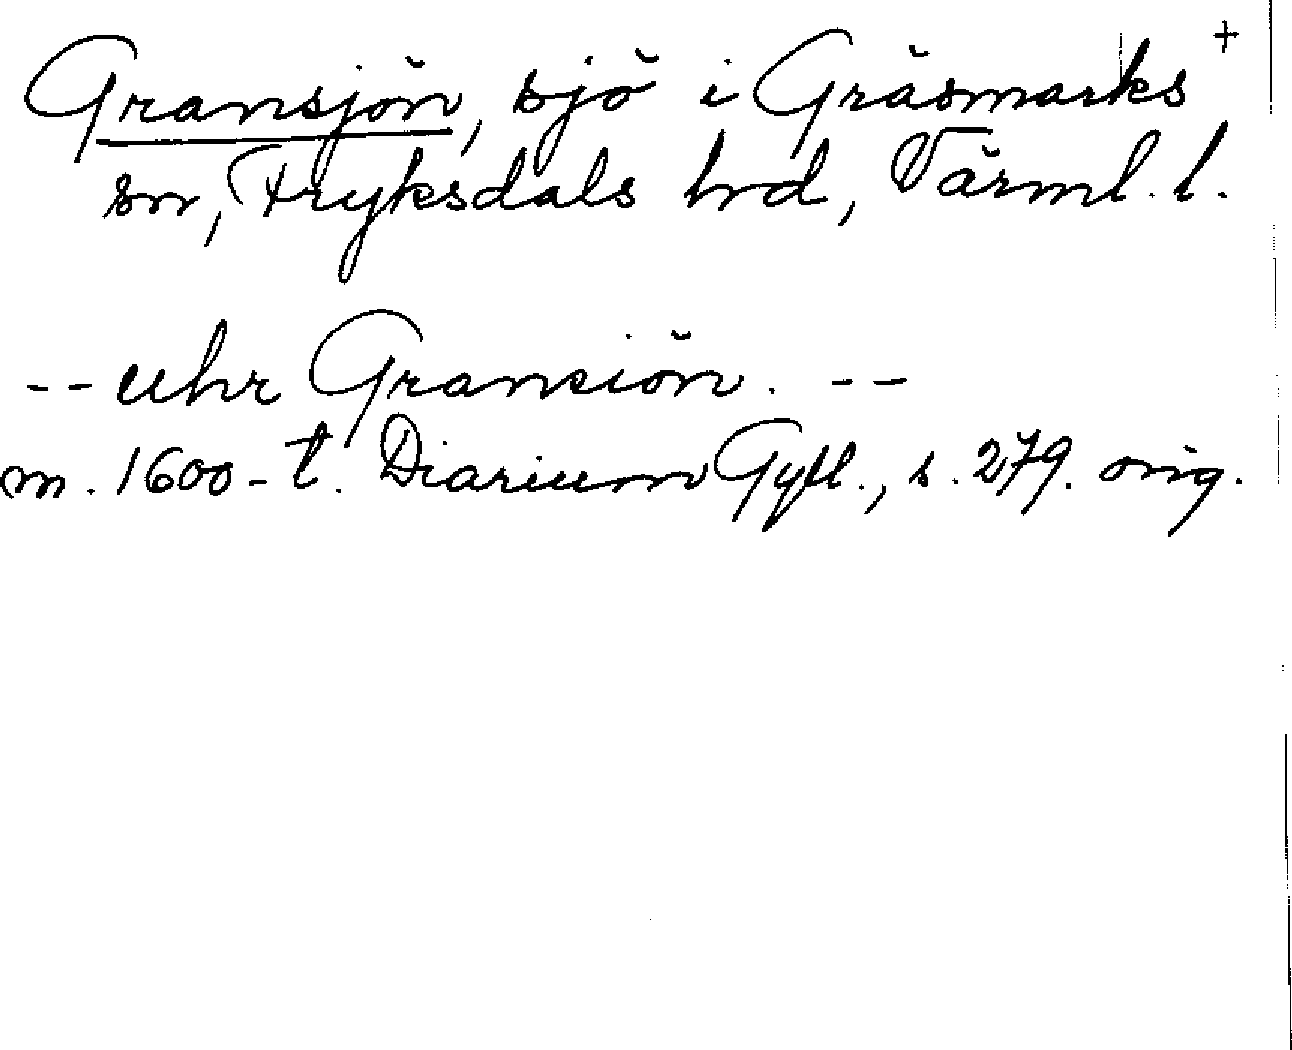 Gransjön, sjö i Gräsmarks +
sn, Fryksdals hd, Värml. l.
-- uhr Gransiön. --
m. 1600-t. Diarium Gyll., s. 279. orig.